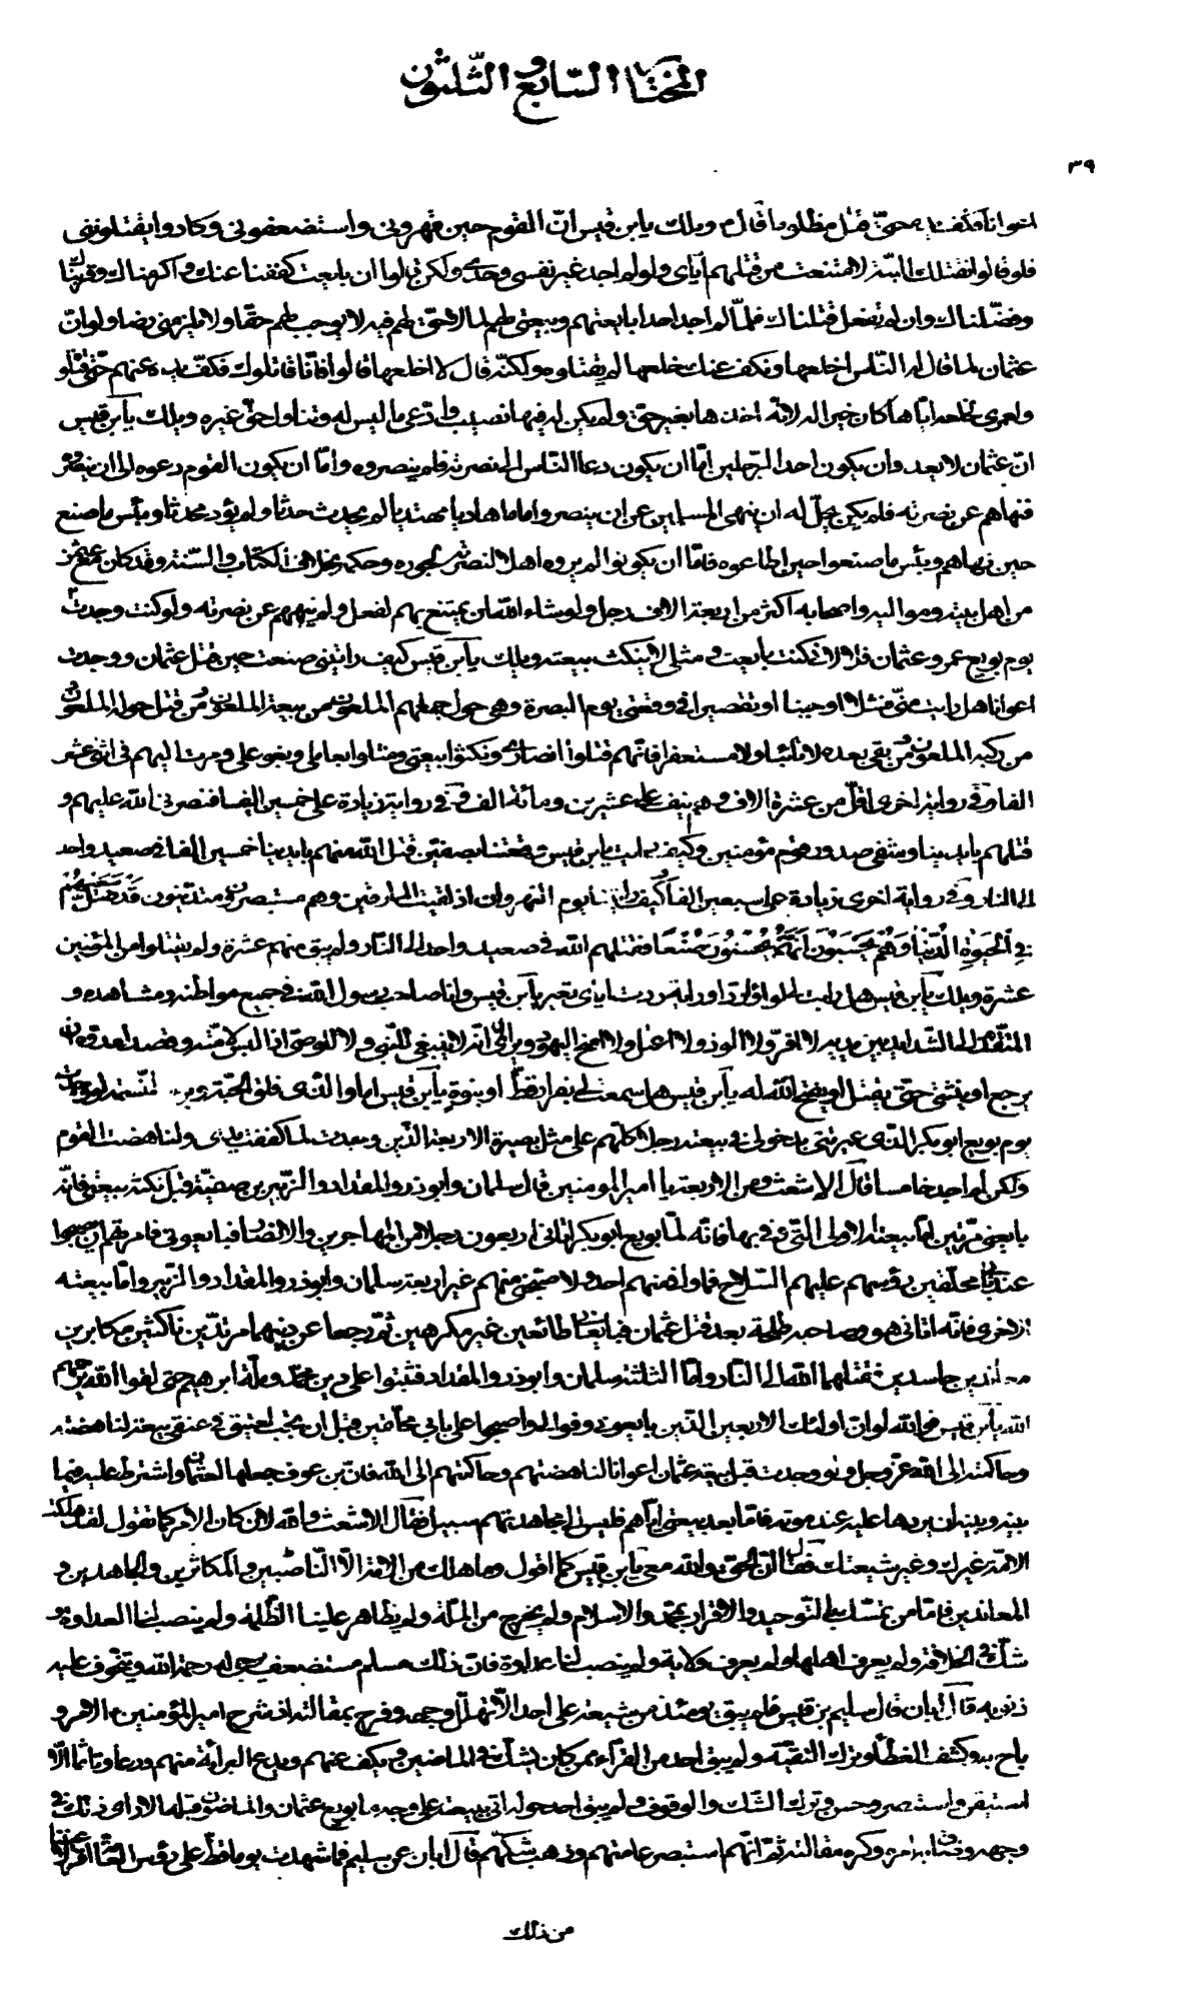 المختار السابع و الثلثون
٣٩
اعوانا فكففت يدى حتى قتل مظلوما قال ع ويلك يابن قيس ان القوم حين قهرونى واستضعفونى وكادوا يقتلوننى
فلو قالوا نقتلك البتة لامتنعت من قتلهم اياى ولو لم اجد غير نفسى وحدى ولكن قالوا ان بايعت كففنا عنك واكرمناك وقربناك
وفضلناك وان لم تفعل قتلناك فلما لم اجد احدا بايعتهم وبيعتى لهم لما لا حق لهم فيه لا يوجب لهم حقا ولا يلزمنى رضا ولو ان
عثمان لما قال له الناس اخلعها ونكف عنك خلعها لم يقتلوه ولكنه قال لا اخلعها قالوا فانا قاتلوك فكف يده عنهم حتى قتلوه
ولعمرى لخلعه اياها كان خيرا له لانه اخذها بغير حق ولم يكن له فيها نصيب وادعى ما ليس له وتناول حق غيره ويلك يابن قيس
ان عثمان لا يعد وان يكون احد الرجلين اما ان يكون دعا الناس الى نصرته فلم ينصروه واما ان يكون القوم دعوه الى ان ينصروه
فنهاهم عن نصرته فلم يكن يحل له ان ينهى المسلمين عن ان ينصروا اماما هاديا مهتديا لم يحدث حدثا ولم يؤو محدثا وبئس ما صنع
حين نهاهم وبئس ما صنعوا حين اطاعوه فاما ان يكونوا لم يروه اهلا لنصرته لجوره وحكمه بخلاف الكتاب والسنة وقد كان مع عثمن
من اهل بيته ومواليه واصحابه اكثر من اربعة الاف رجل ولو شاء الله ان يمتنع بهم لفعل ولم ينههم عن نصرته ولو كنت وجدت
يوم بويع عمر وعثمان كنت بايعت و مثلى لا ينكث بيعته ويلك يابن قيس كيف رايتنى صنعت حين قتل عثمان ووجدت
اعوانا هل رايت منى فشلا او جبنا او تقصيرا فى وقعتى يوم البصرة وهى حول جملهم الملعون من معه الملعون من قتل حوله الملعون
من ركبه الملعون من بقى بعده لا تائبا ولا مستغفرا فانهم قتلوا انصارى ونكثوا بيعتى ومثلوا بعاملى وبغوا على وسرت اليهم فى اثنى عشر
الفا وفى رواية اخرى اقل من عشرة الاف وهم نيف على عشرين ومائة الف وفى رواية زيادة على خمسين الفا فنصرنى الله عليهم و
قتلهم بايدينا وشفى صدور قوم مؤمنين وكيف رايت يابن قيس وقعتنا بصفين قتل الله منهم بايدينا خمسين الفا فى صعيد واحد
الى النار وفى رواية اخرى زيادة على سبعين الفا وكيف رايتنا يوم النهروان اذ لقيت المارقين وهم مستبصرون متدينون قد ضل سعيهم
فى الحيوة الدنيا وهم يحسبون انهم يحسنون صنعا فقتلهم الله فى صعيد واحد الى النار ولم يبق منهم عشرة ولم يقتلوا من المؤمنين
عشرة ويلك يابن قيس هل رايت لى لواء رد او راية ردت اياى تعير يابن قيس وانا صاحب رسول الله فى جميع مواطنه ومشاهده و
المتقدم الى الشدايد بين يديه لا افر ولا الوذ ولا اعتل ولا انه لا ينبغى للنبى ولا للوصى اذا لبس لامته وقصد لعدوه ان
يرجع او ينثنى حتى يقتل او يفتح الله له يابن قيس هل سمعت لى بفرار قط او نبوة يابن قيس اما والذى فلق الحبة وبرء النسمة لو وجدت
يوم بويع ابو بكر الذى عيرتنى بدخولى فى بيعته رجلا كلهم على مثل بصيرة الاربعة الذين وجدت لما كففت يدى ولناهضت القوم
ولكن لم اجد خامسا قال الاشعث ومن الاربعة يا امير المومنين قال سلمان وابوذر والمقداد والزبير بن صفية قبل نكثه بيعتى فانه
بايعنى مرتين اما بيعته الاولى التى وفى بها فانه لما بويع ابوبكر اتانى اربعون رجلا من المهاجرين والانصار فبايعونى فامرتهم ان يصبحوا
عند بابى محلقين رؤسهم عليهم السلاح فما وفى منهم احد ولا صبحنى منهم غير اربعة سلمان وابوذر والمقداد والزبير واما بيعته
الاخرى فانه اتانى هو وصاحبه طلحة بعد قتل عثمان فبايعانى طائعين غير مكرهين ثم رجعا عن دينهما مرتدين ناكثين مكابرين
معاندين حاسدين فقتلهما الله الى النار واما الثلثة سلمان وابوذر والمقداد فثبتوا على دين محمد وملة ابرهيم حتى لقوا الله يرحمهم
الله يابن قيس فوالله لو ان اولئك الاربعين الذين بايعونى وفوا لى واصبحوا على بابى محلقين قبل ان تجب لعتيق فى عنقى بيعة لناهضته
وحاكمته الى الله عز وجل ولو وجدت قبل بيعة عثمان اعوانا لناهضتهم وحاكمتهم الى الله فان بن عوف جعلها لعثمان واشترط عليه فيما
بينه وبينه ان يردها عليه عند موته فاما بعد بيعتى اياهم فليس الى مجاهدتهم سبيل فقال الاشعث والله لان كان الامر كما تقول لقد هلكت
الامة غيرك وغير شيعتك فقال ان الحق والله معى يابن قيس كما اقول وما هلك من الامة الا الناصبين والمكاثرين والجاهدين و
المعاندين فاما من تمسك بالتوحيد والاقرار بمحمد والاسلام ولم يخرج من الملة ولم يظاهر علينا الظلمة ولم ينصب لنا العداوة و
شك فى الخلافة ولم يعرف اهلها ولم يعرف ولاية ولم ينصب لنا عداوة فان ذلك مسلم مستضعف يرجى له رحمة الله ويتخوف عليه
ذنوبه قال ابان قال سليم بن قيس فلم يبق يومئذ من شيعة على احد الا تهلل وجهه وفرح بمقالته اذ شرح امير المؤمنين الامر و
باح به وكشف الغطاء وترك التقية ولم يبق احد من القراء ممن كان يشك فى الماضين ويكف عنهم ويدع البرائة منهم ورعا وتاثما الا
استيقن واستبصر وحسن وترك الشك والوقوف ولم يبق احد حوله اتى ببيعته على وجه ما بويع عثمان والماضون قبله الا رأى ذلك فى
وجهه وضاق به امره وكره مقالته ثم انهم استبصر عامتهم وذهب شكهم قال ابان عن سليم فما شهدت يوما قط على رؤس العامة اقر لاعيننا
من ذلك